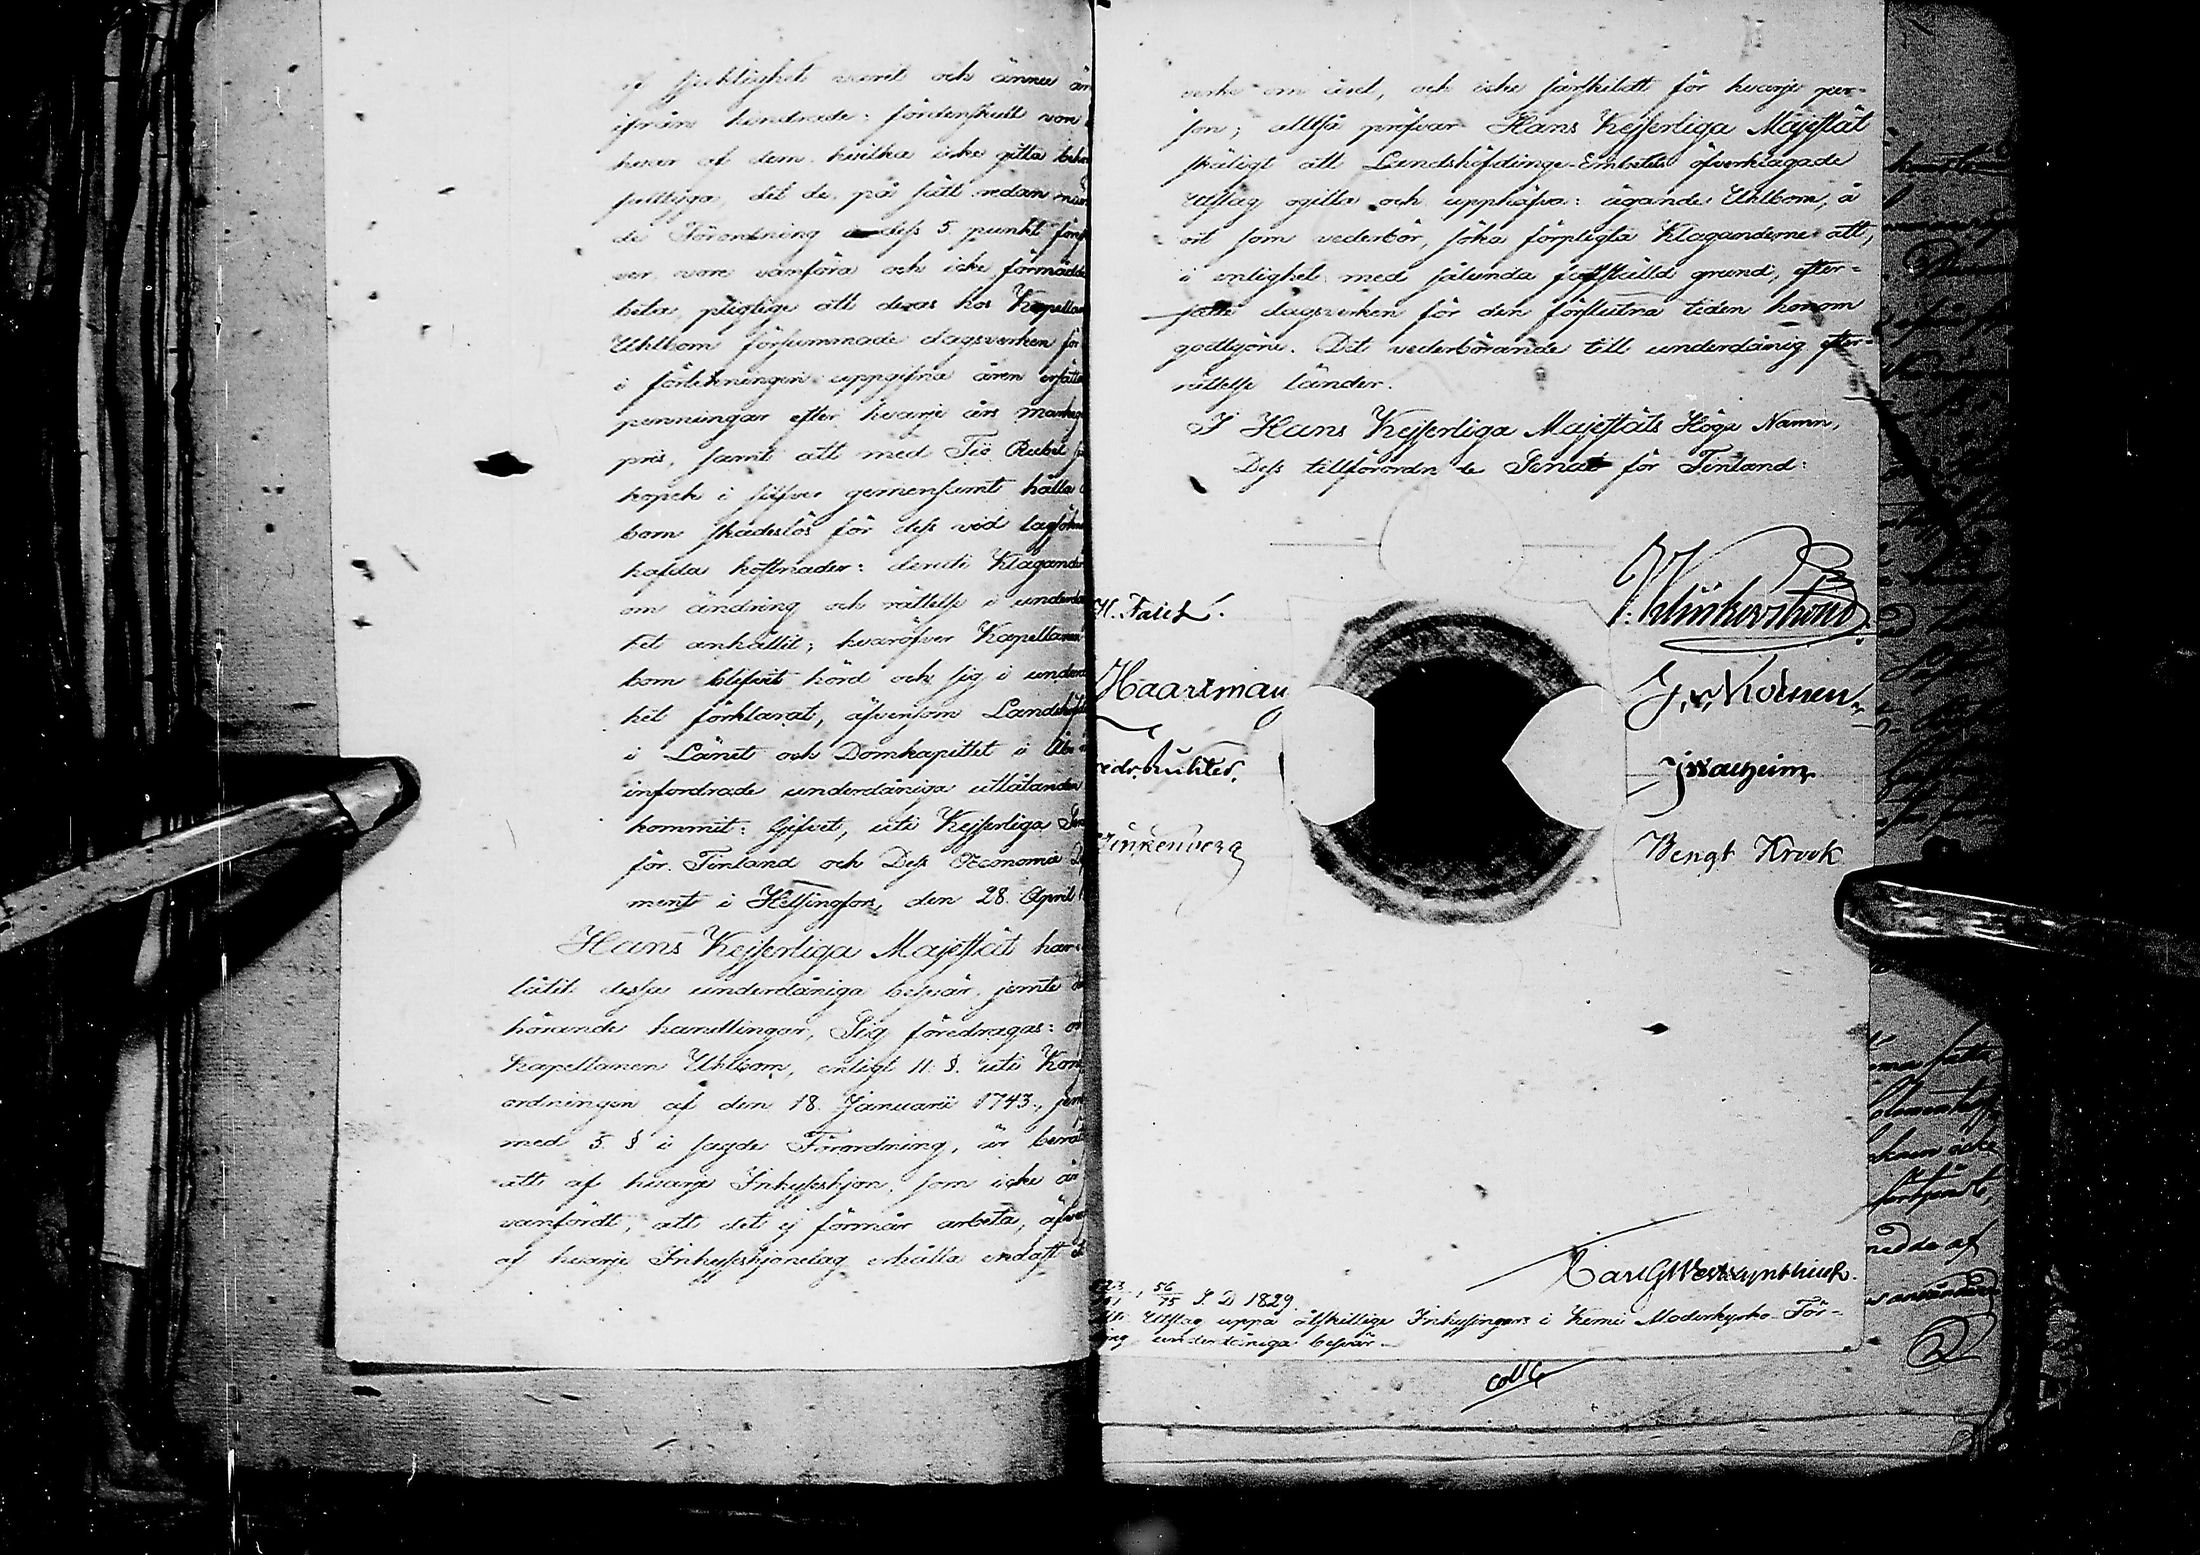 af sjuklighet varit och ännu än
ifrån hindrade: fördenskull vore
hvar af dem, hvilka icke gitta
det de på sätt redan
de Förordning i dess 5. punkt
ver vore vanföra och icke förmådde
beta, pligtige att deras hos Kapellan
Uhlbom försummade dagsverken för
i förteckningen uppgifna åren ersätta
penningar efter hvarje års markegå
pris, samt att med Tio Rubel
kopek i silfver gemensamt hålla
bom skadeslös för dess vid lagsökn
hafda kostnader: deruti Klagande
om ändring och rättelse i underdå
het anhållit; hvaröfver Kapellanen
bom blifvit hörd och sig i underd
het förklarat, äfvensom Landshöf
i Länet och Domkapitlet i Åbo
infordrade underdåniga utlåtanden
kommit: Gifvet, uti Kejserliga Sen
för Finland och Dess Œconomie De
ment i Helsingfors, den 28. April
Hans Kejserliga Majestät har
låtit dessa underdåniga besvär, jemte
hörande handlingar, Sig föredragas: o
Kapellanen Uhlbom, enligt 11. §. uti Kong
ordningen af den 18. Januarii 1743., jem
med 5. § i sagde Förordning, är berät
att af hvarje Inhyseshjon, som icke är
vanfördt, att det ej förmår arbeta, äfven
af hvarje Inhyseshjonelag erhålla endast
verke om året, och icke särskildt för hvarje per-
son; alltså pröfvar Hans Kejserliga Majestät
skäligt att Landshöfdinge-Embetets öfverklagade
Utslag ogilla och upphäfva: ägande Uhlbom, å
ort som vederbör, söka förpligta Klaganderne att,
i enlighet med sålunda fastställd grund, efter-
satte dagsverken för den förflutna tiden honom
godtgöra. Det vederbörande till underdånig efter-
rättelse länder.
I Hans Kejserliga Majestäts Höga Namn,
Dess tillförordnade Senat för Finland:
Klinckowström
H. Falck.
Haartman
J. Walheim
Bengt Krook
Carl G Westzynthius.
56/75 S. D 1829.
Utslag uppå åtskillige Inhysingars i Kemi Moderkyrko-För-
ing underdåniga besvär.